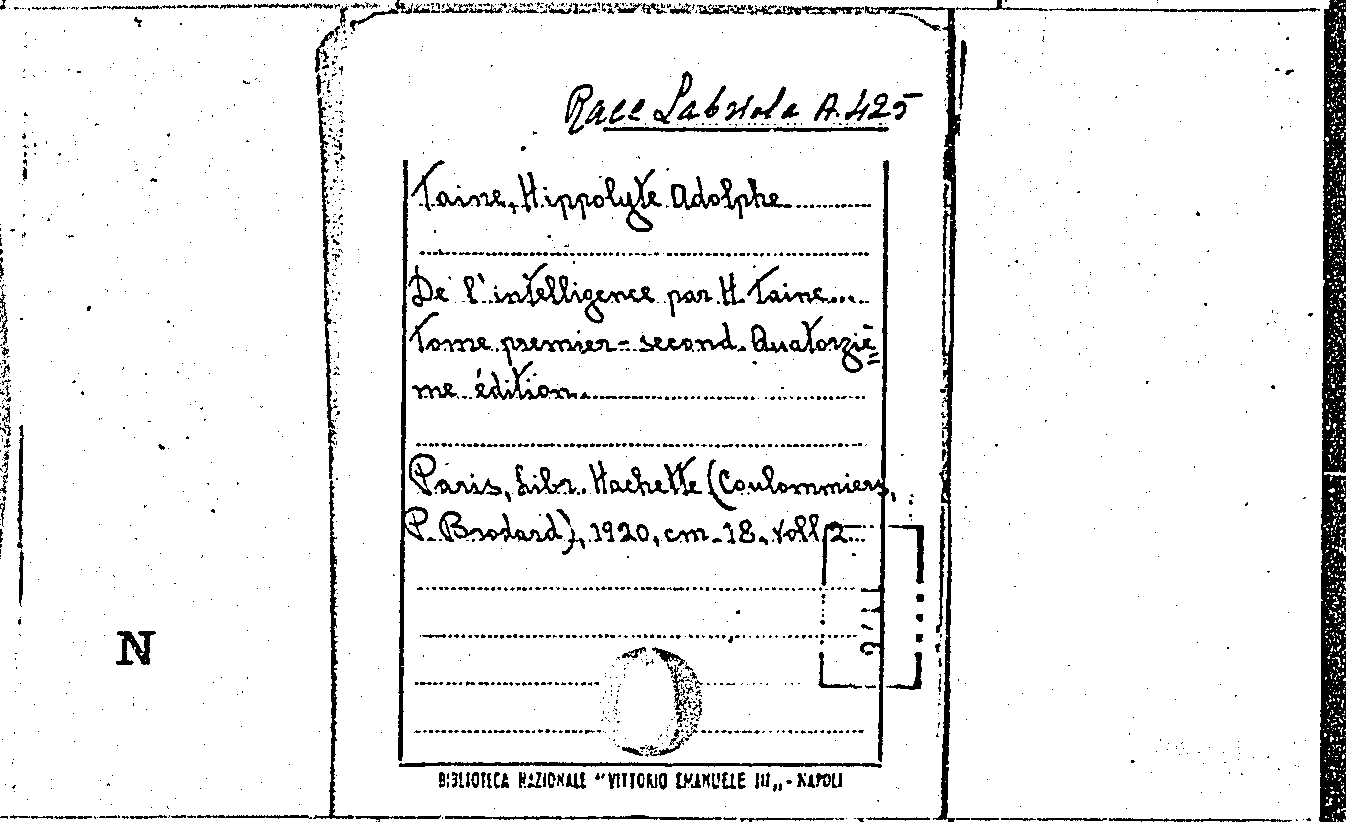 Racc Labriola A.425
Taine, Hippolyte Adolphe
De l'intelligence par H. Taine...
Tome premier-second. Quatorziè=
me édition.
Paris, Libr. Hachette (Coulommiers,
P. Brodard), 1920, cm. 18, voll. 2.
N
BIBLIOTECA NAZIONALE "VITTORIO EMANUELE III„ - NAPOLI